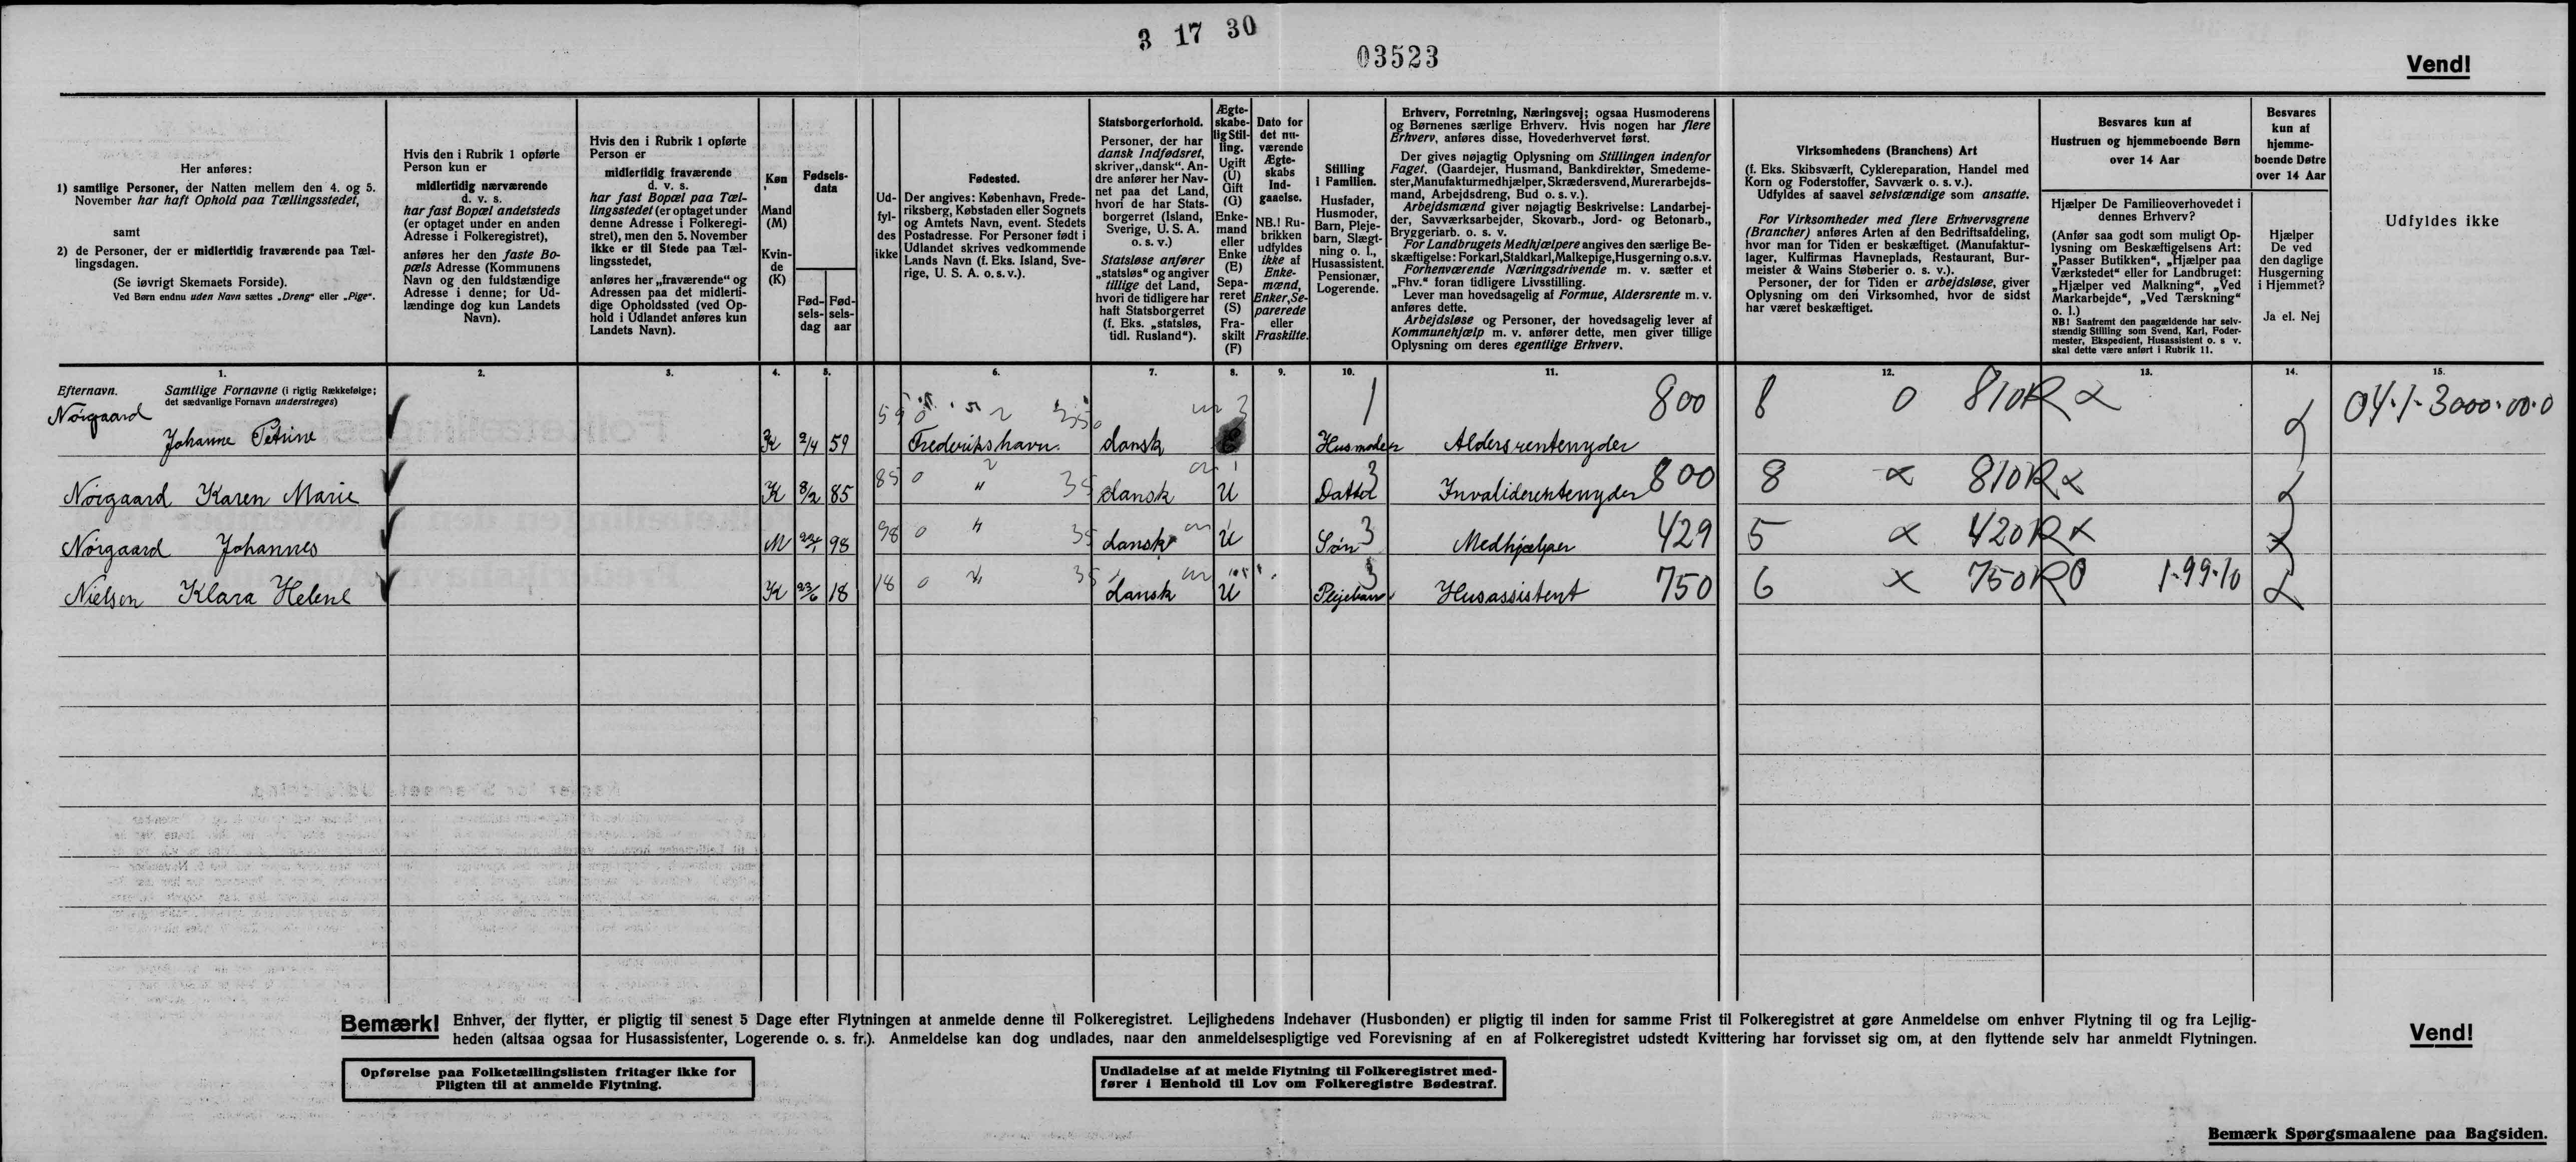 3 17 30
03523
Vend!
Her anføres:
1) samtlige Personer, der Natten mellem den 4. og 5.
November har haft Ophold paa Tællingsstedet,
samt
2) de Personer, der er midlertidig fraværende paa Tæl-
lingsdagen.
(Se iøvrigt Skemaets Forside).
Ved Børn endnu uden Navn sættes „Dreng" eller „Pige".
Hvis den i Rubrik 1 opførte
Person kun er
midlertidig nærværende
d. v. s.
har fast Bopæl andetsteds
(er optaget under en anden
Adresse i Folkeregistret),
anføres her den faste Bo-
pæls Adresse (Kommunens
Navn og den fuldstændige
Adresse i denne; for Ud-
lændinge dog kun Landets
Navn).
Hvis den i Rubrik 1 opførte
Person er
midlertidig fraværende
d. v. s.
har fast Bopæl paa Tæl-
lingsstedet (er optaget under
denne Adresse i Folkeregi-
stret), men den 5. November
ikke er til Stede paa Tæl-
lingsstedet,
anføres her „fraværende" og
Adressen paa det midlerti-
dige Opholdssted (ved Op-
hold i Udlandet anføres kun
Landets Navn).
Køn
Mand
(M)
Kvin-
de
(K)
Fødsels-
data
Fød-
sels-
dag
Fød-
sels-
aar
Ud-
fyl-
des
ikke
Fødested.
Der angives: København, Frede-
riksberg, Købstaden eller Sognets
og Amtets Navn, event. Stedets
Postadresse. For Personer født i
Udlandet skrives vedkommende
Lands Navn (f. Eks. Island, Sve-
rige, U. S. A. o. s. v.).
Statsborgerforhold.
Personer, der har
dansk Indfødsret,
skriver „dansk". An-
dre anfører her Nav-
net paa det Land,
hvori de har Stats-
borgerret (Island,
Sverige, U. S. A.
o. s. v.)
Statsløse anfører
„statsløs" og angiver
tillige det Land,
hvori de tidligere har
haft Statsborgerret
(f. Eks. „statsløs,
tidl. Rusland").
Ægte-
skabe-
lig Stil-
ling.
Ugift
(U)
Gift
(G)
Enke-
mand
eller
Enke
(E)
Sepa-
reret
(S)
Fra-
skilt
(F)
Dato for
det nu-
værende
Ægte-
skabs
Ind-
gaaelse.
NB.! Ru-
brikken
udfyldes
ikke af
Enke-
mænd,
Enker, Se-
parerede
eller
Fraskilte.
Stilling
i Familien.
Husfader,
Husmoder,
Barn, Pleje-
barn, Slægt-
ning o. l.,
Husassistent,
Pensionær,
Logerende.
Erhverv, Forretning, Næringsvej; ogsaa Husmoderens
og Børnenes særlige Erhverv. Hvis nogen har flere
Erhverv, anføres disse, Hovederhvervet først.
Der gives nøjagtig Oplysning om Stillingen indenfor
Faget. (Gaardejer, Husmand, Bankdirektør, Smedeme-
ster, Manufakturmedhjælper, Skrædersvend, Murerarbejds-
mand, Arbejdsdreng, Bud o. s. v.).
Arbejdsmænd giver nøjagtig Beskrivelse: Landarbej-
der, Savværksarbejder, Skovarb., Jord- og Betonarb.,
Bryggeriarb. o. s. v.
For Landbrugets Medhjælpere angives den særlige Be-
skæftigelse: Forkarl, Staldkarl, Malkepige, Husgerning o.s.v.
Forhenværende Næringsdrivende m. v. sætter et
„Fhv." foran tidligere Livsstilling.
Lever man hovedsagelig af Formue, Aldersrente m. v.
anføres dette.
Arbejdsløse og Personer, der hovedsagelig lever af
Kommunehjælp m. v. anfører dette, men giver tillige
Oplysning om deres egentlige Erhverv.
Virksomhedens (Branchens) Art
(f. Eks. Skibsværft, Cyklereparation, Handel med
Korn og Foderstoffer, Savværk o. s. v.).
Udfyldes af saavel selvstændige som ansatte.
For Virksomheder med flere Erhvervsgrene
(Brancher) anføres Arten af den Bedriftsafdeling,
hvor man for Tiden er beskæftiget. (Manufaktur-
lager, Kulfirmas Havneplads, Restaurant, Bur-
meister & Wains Støberier o. s. v.).
Personer, der for Tiden er arbejdsløse, giver
Oplysning om den Virksomhed, hvor de sidst
har været beskæftiget.
Besvares kun af
Hustruen og hjemmeboende Børn
over 14 Aar
Hjælper De Familieoverhovedet i
dennes Erhverv?
(Anfør saa godt som muligt Op-
lysning om Beskæftigelsens Art:
„Passer Butikken", „Hjælper paa
Værkstedet" eller for Landbruget:
„Hjælper ved Malkning", „Ved
Markarbejde", „Ved Tærskning"
o. l.)
NB! Saafremt den paagældende har selv-
stændig Stilling som Svend, Karl, Foder-
mester, Ekspedient, Husassistent o. s v.
skal dette være anført i Rubrik 11.
Besvares
kun af
hjemme-
boende Døtre
over 14 Aar
Hjælper
De ved
den daglige
Husgerning
i Hjemmet?
Ja el. Nej
Udfyldes ikke
1. 2. 3. 4. 5. 6. 7. 8. 9. 10. 11. 12. 13. 14. 15.
Efternavn. Samtlige Fornavne (i rigtig Rækkefølge;
det sædvanlige Fornavn understreges)
59 1 800 8 0 810R 04·1·3000·00·0
Nørgaard
Johanne Petrine K 2/4 59 Frederikshavn. dansk Husmoder Aldersrentenyder
85 0 35 3 800 8 810R
Nørgaard Karen Marie K 8/2 85 " dansk U Datter Invaliderentenyder
98 0 35 3 429 5 420R
Nørgaard Johannes M 98 " dansk U Søn Medhjælper
18 0 35 3 750 6 x 750R0 1-99-10
Nielsen Klara Helene K 23/6 18 " dansk U Plejebarn Husassistent
Bemærk! Enhver, der flytter, er pligtig til senest 5 Dage efter Flytningen at anmelde denne til Folkeregistret. Lejlighedens Indehaver (Husbonden) er pligtig til inden for samme Frist til Folkeregistret at gøre Anmeldelse om enhver Flytning til og fra Lejlig-
heden (altsaa ogsaa for Husassistenter, Logerende o. s. fr.). Anmeldelse kan dog undlades, naar den anmeldelsespligtige ved Forevisning af en af Folkeregistret udstedt Kvittering har forvisset sig om, at den flyttende selv har anmeldt Flytningen.
Vend!
Opførelse paa Folketællingslisten fritager ikke for
Pligten til at anmelde Flytning.
Undladelse af at melde Flytning til Folkeregistret med-
fører i Henhold til Lov om Folkeregistre Bødestraf.
Bemærk Spørgsmaalene paa Bagsiden.